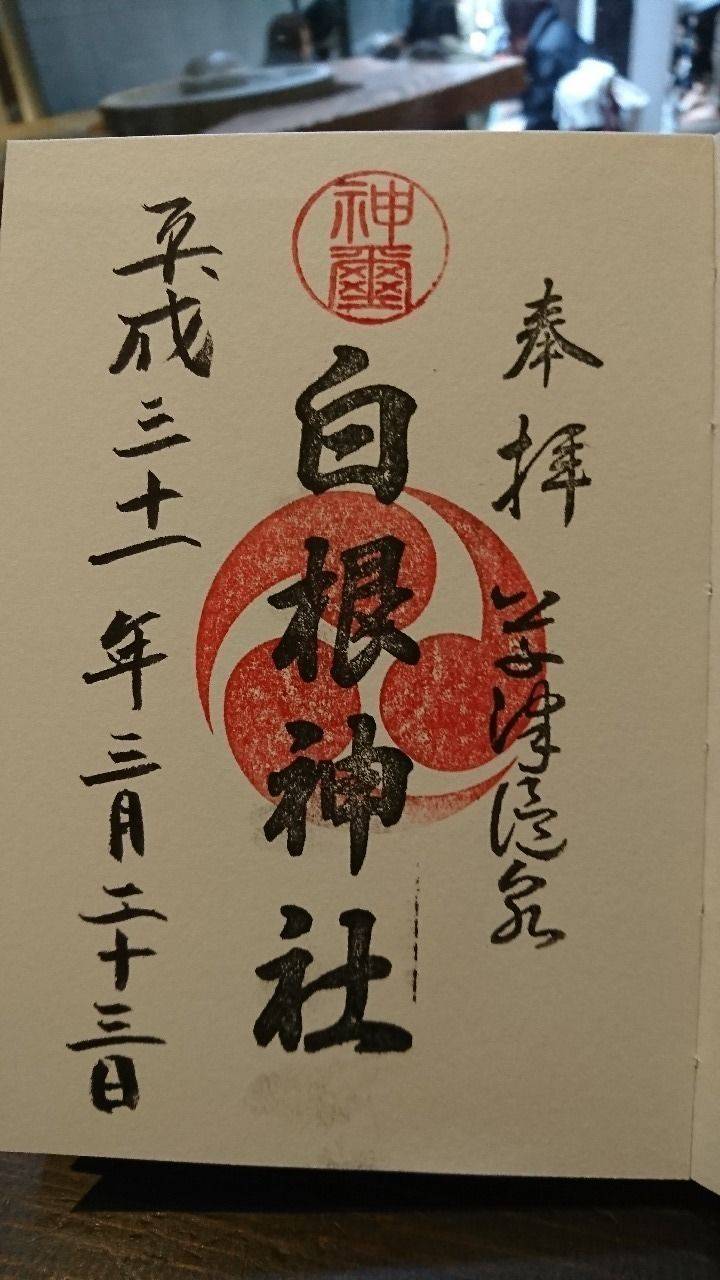 奉拝
草津温泉
神璽
白根神社
平成三十一年三月二十三日